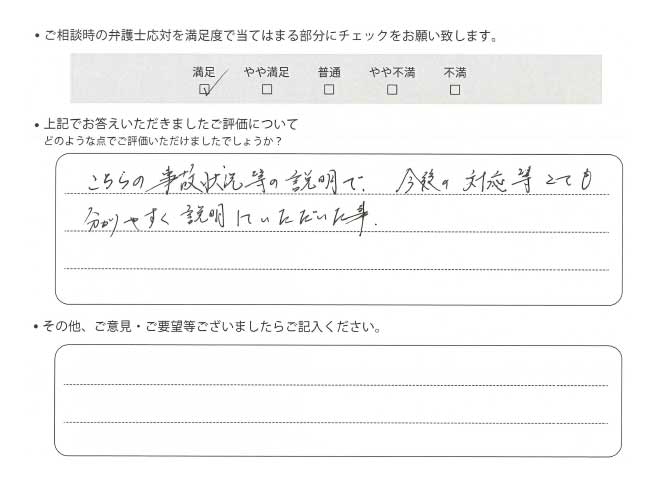 • ご相談時の弁護士応対を満足度で当てはまる部分にチェックをお願い致します。
満足 やや満足 普通 やや不満 不満
☑ □ □ □ □
• 上記でお答えいただきましたご評価について
どのような点でご評価いただけましたでしょうか？
こちらの事故状況等の説明で、今後の対応等とても
分かりやすく説明していただいた事.
• その他、ご意見・ご要望等ございましたらご記入ください。